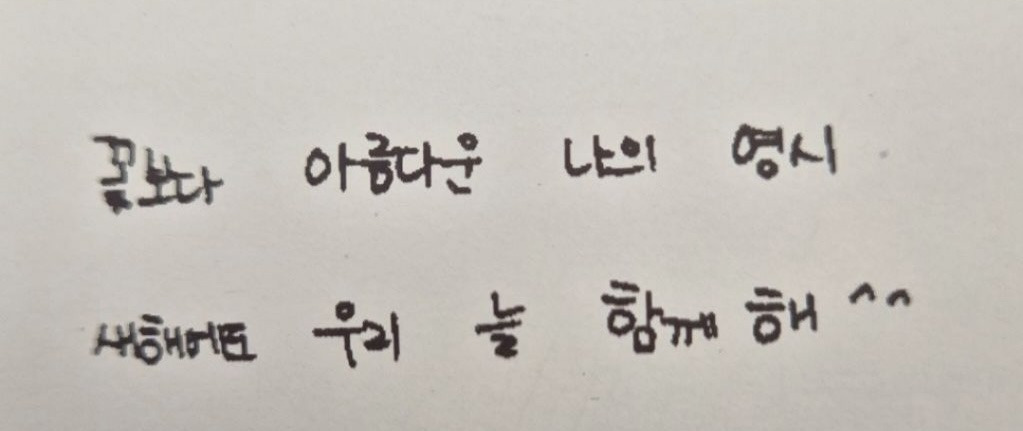 꽃보다 아름다운 나의 영시
새해에도 우리 늘 함께 해 ^^